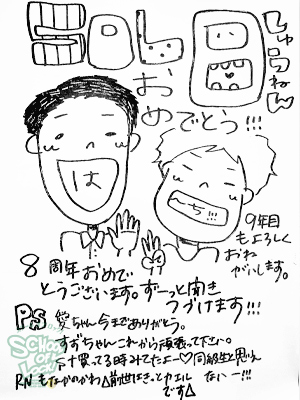 SOL 8
しゅうねん
おめでとう!!!
は
んち!!!
9年目
もよろしく
おね
がいします。
8周年おめで
とうございます。ずーっと聞き
つづけます!!!
PS 愛ちゃん今までありがとう。
すずちゃんこれから頑張って下さい。
同級生と思え
ないー!!!
RN もなかのかわ△前世はきっとカエル
です△
SCHOOL OF LOCK!